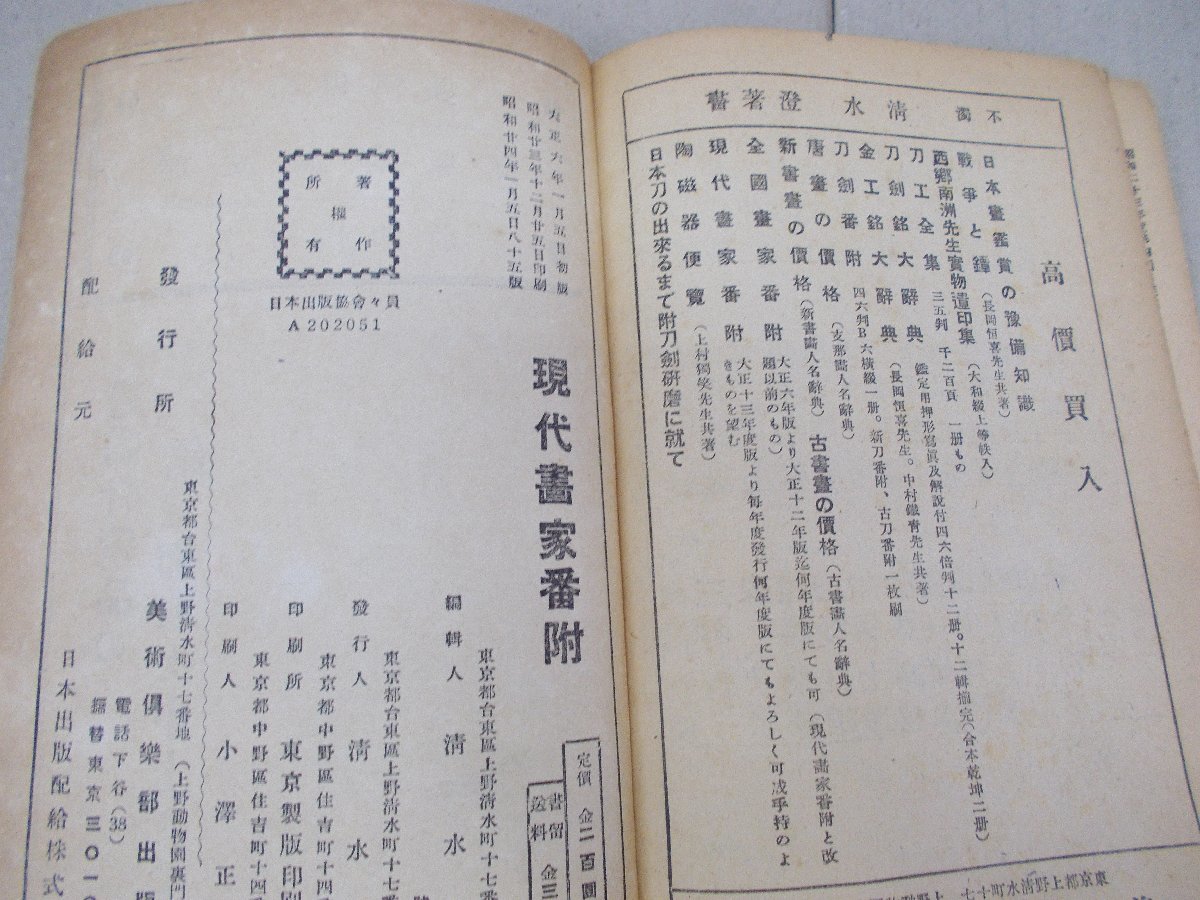 不濁 淸水 澄著書
高價買入
日本畫鑑賞の豫備知識
戰爭と鐔(長岡恒喜先生共著)
西鄕南洲先生實物遺印集(大和綴上等帙入)
刀工全集 三五判 千二百頁 一册もの
刀劍銘大辭典 鑑定用押形寫眞及解說付四六倍判十二册。十二輯揃完(合本乾坤二册)
金工銘大辭典(長岡恒喜先生。中村鐵靑先生共著)
刀劍番附 四六判B六橫綴一册。新刀番附、古刀番附一枚刷
唐畫の價格(支那畫人名辭典)
新書畫の價格(新書畫人名辭典) 古書畫の價格(古書畫人名辭典)
全國畫家番附 大正六年版より大正十二年版迄何年度版にても可(現代畫家番附と改題以前のもの)
現代畫家番附 大正十三年度版より每年度發行何年度版にてもよろしく可成手持のよきものを望む
陶磁器便覽(上村獨笑先生共著)
日本刀の出來るまで附刀劍硏磨に就て
東京都上野淸水町十七
大正六年一月五日初版
昭和廿三年十二月廿五日印刷
昭和廿四年一月五日八十五版
著作權所有
日本出版協會々員
A 202051
現代畫家番附
定價 金二百圓
書留送料 金三
東京都台東區上野淸水町十七番
編輯人 淸水
東京都台東區上野淸水町十七
發行人 淸水
東京都中野區住吉町十四
印刷所 東京製版印刷
東京都中野區住吉町十四
印刷人 小澤正
東京都台東區上野淸水町十七番地(上野動物園裏門
發行所 美術倶樂部出版
電話下谷(38)
振替東京三〇一〇
配給元 日本出版配給株式